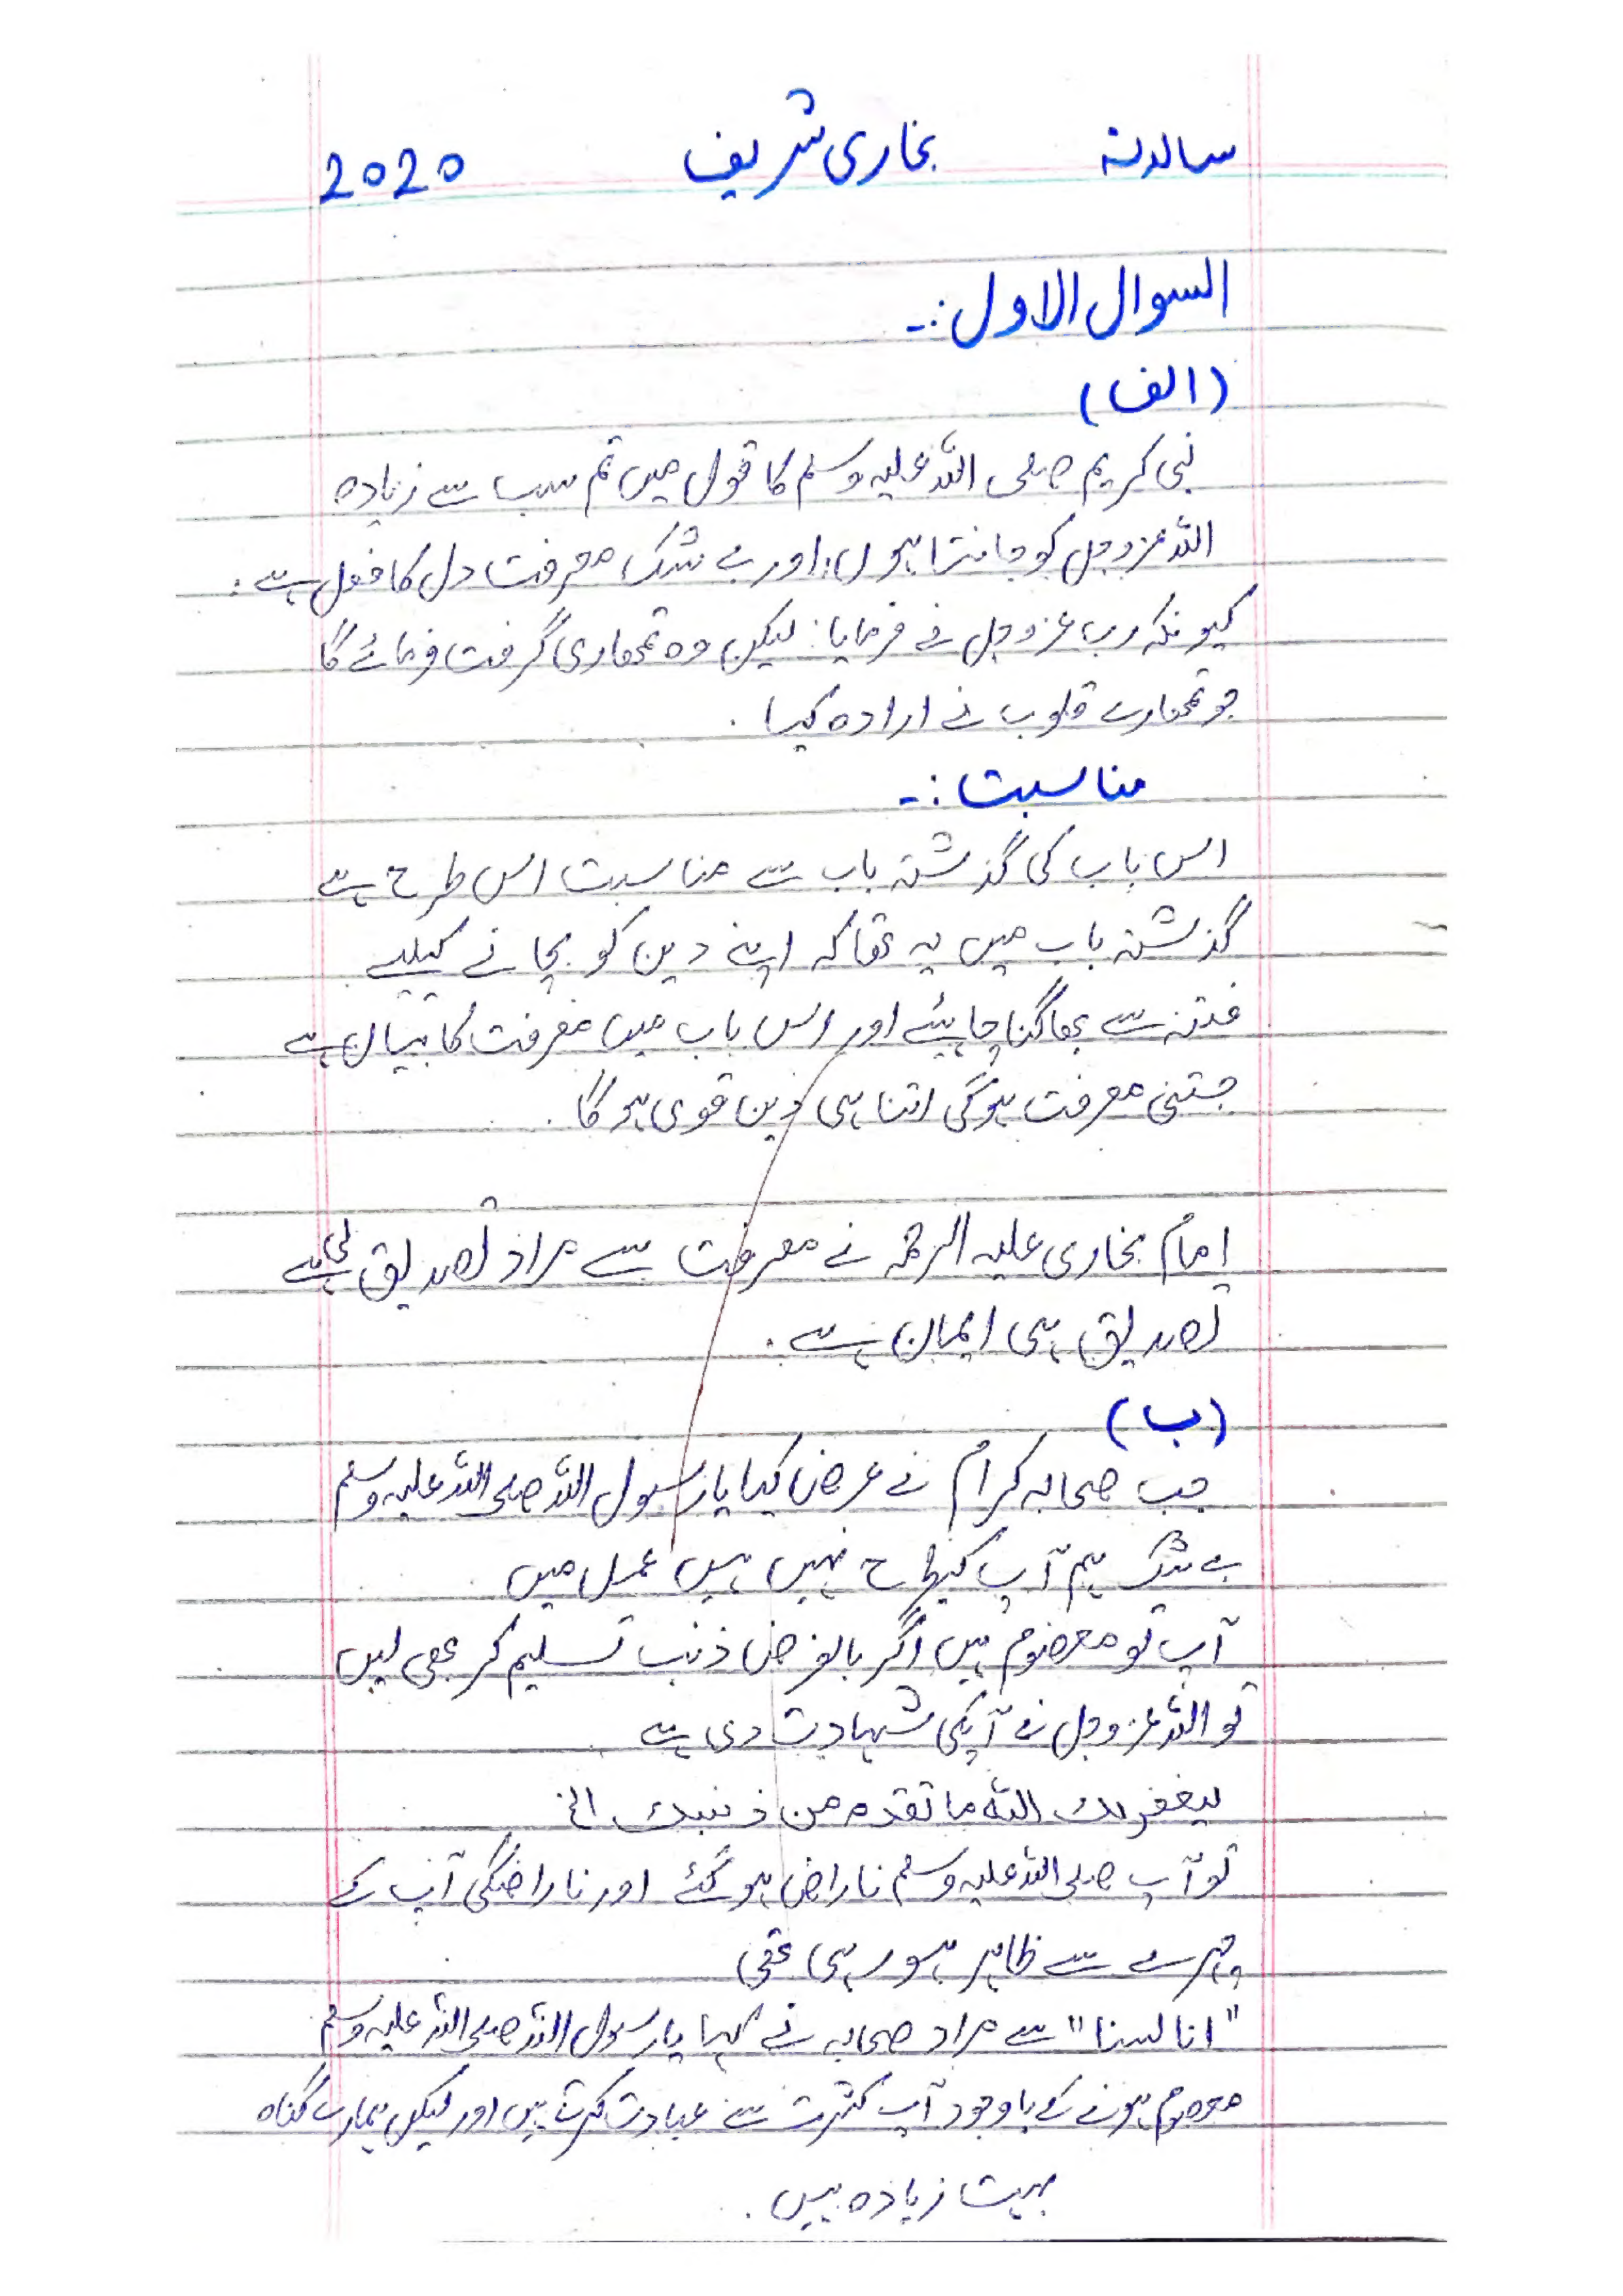 سالانہ بخاری شریف 2020
السوال الاول :۔
(الف)
نبی کریم صلی اللہ علیہ وسلم کا قول میں تم سب سے زیادہ
اللہ عزوجل کو جانتا ہوں، اور بے شک معرفت دل کا فعل ہے:
کیونکہ رب عزوجل نے فرمایا: لیکن وہ تمھاری گرفت فرمائے گا
جو تمھارے قلوب نے ارادہ کیا.
مناسبت :۔
اس باب کی گذشتہ باب سے مناسبت اس طرح ہے
گذشتہ باب میں یہ تھا کہ اپنے دین کو بچانے کیلیے
فتنہ سے بھاگنا چاہیئے اور اس باب میں معرفت کا بیان ہے
جتنی معرفت ہوگی اتنا ہی دین قوی ہوگا.
امام بخاری علیہ الرحمہ نے معرفت سے مراد تصدیق لی ہے
تصدیق ہی ایمان ہے.
(ب)
جب صحابہ کرام نے عرض کیا یا رسول اللہ صلی اللہ علیہ وسلم
بے شک ہم آپ کیطرح نہیں ہیں عمل میں
آپ تو معصوم ہیں اگر بالفرض ذنب تسلیم کر بھی لیں
تو اللہ عزوجل نے آپکی شہادت دی ہے
لیغفرلک اللہ ما تقدم من ذنبک الخ
تو آپ صلی اللہ علیہ وسلم ناراض ہوگئے اور ناراضگی آپ کے
چہرے سے ظاہر ہو رہی تھی
"انا لسنا" سے مراد صحابہ نے کہا یا رسول اللہ صلی اللہ علیہ وسلم
معصوم ہونے کے باوجود آپ کثرت سے عبادت کرتے ہیں اور لیکن ہمارے گناہ
بہت زیادہ ہیں.